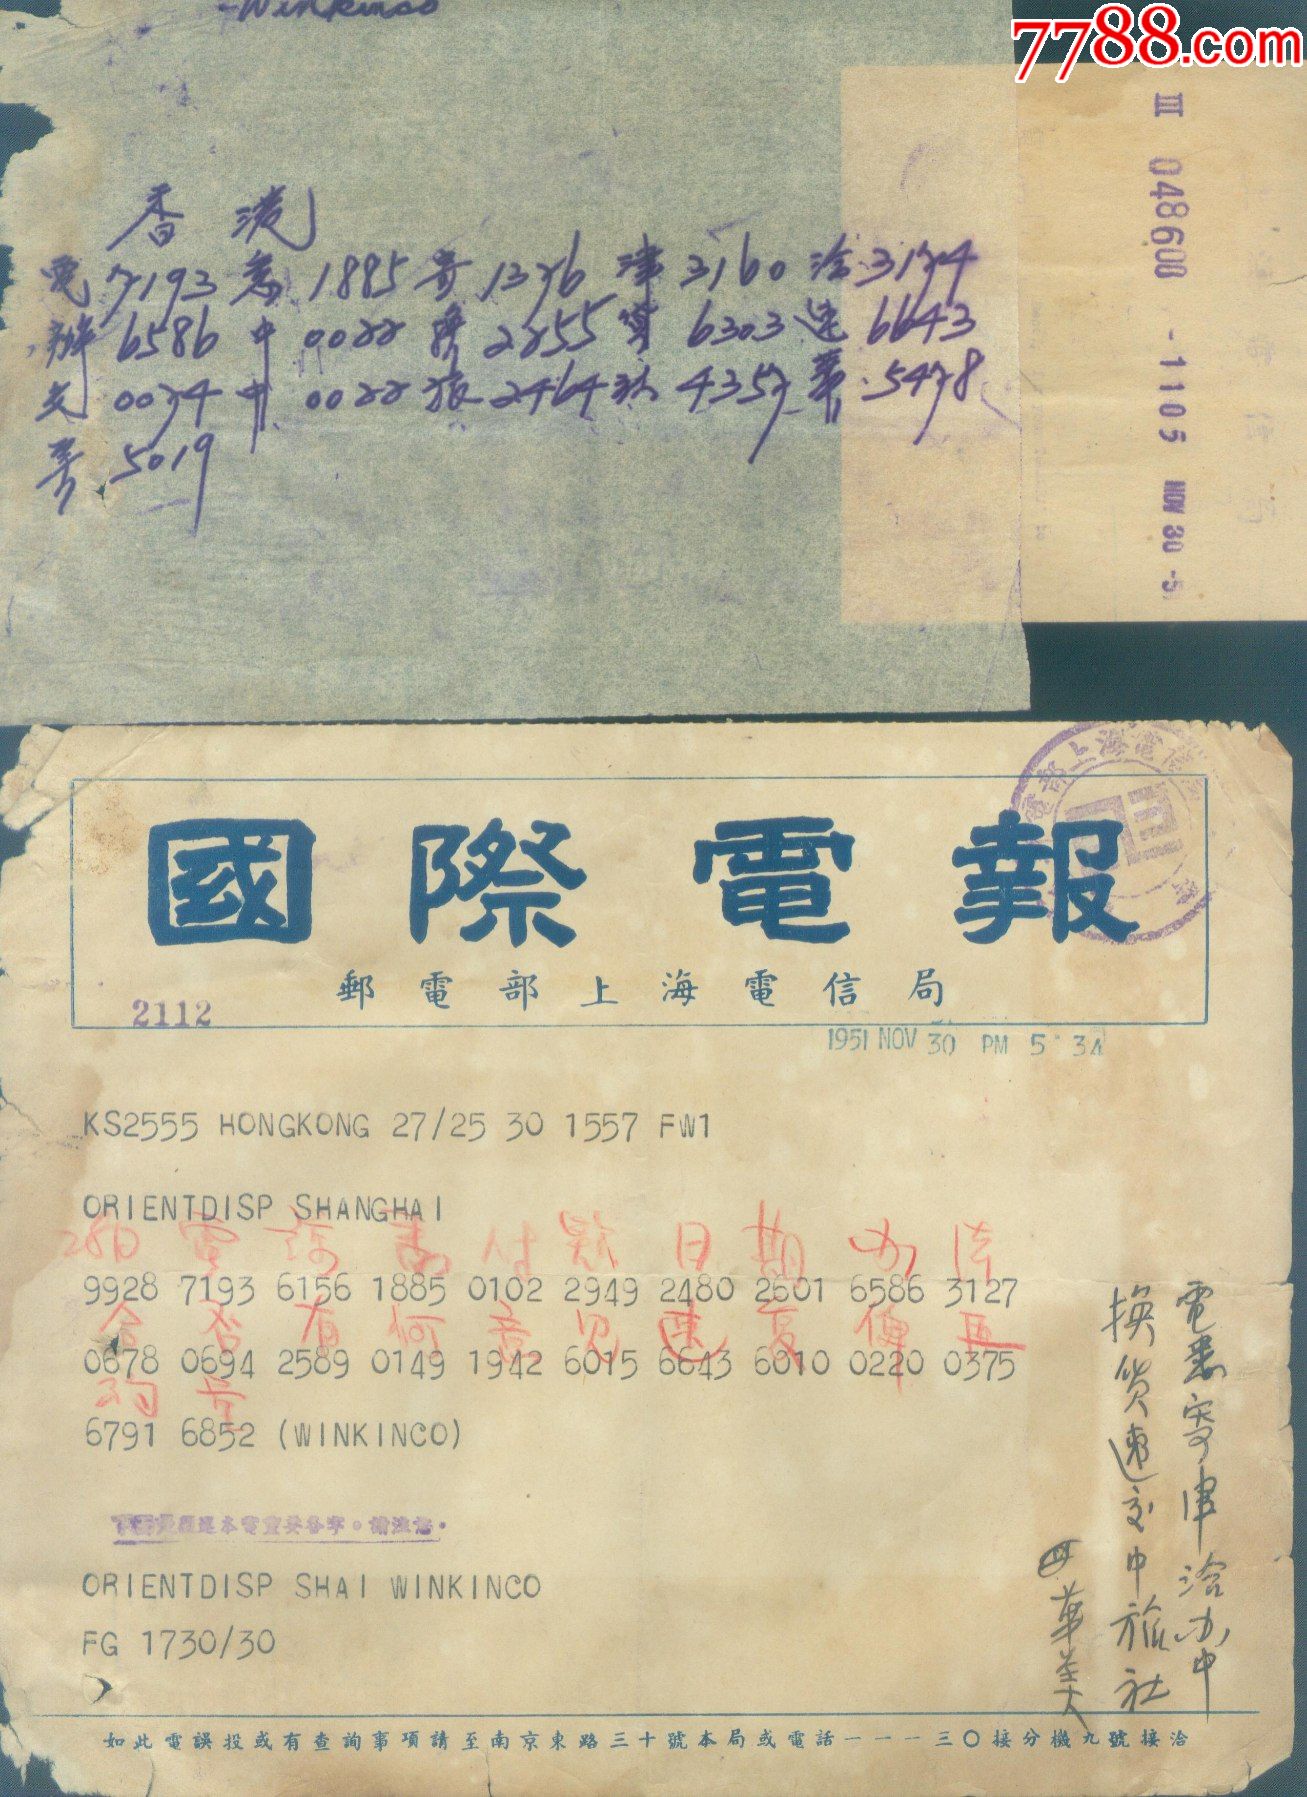 7788.com
-Winkinco
III 048608 -1105 NOV 30 -5
香港
電 7193 悉 1885 寄 1376 津 3160 洽 3174
辦 6586 中 0022 換 2255 貨 6303 速 6643
交 0074 中 0022 旅 2464 社 4357 華 5478
美 5019
國際電報
郵電部上海電信局
2112
1951 NOV 30 PM 5 34
KS2555 HONGKONG 27/25 30 1557 FW1
ORIENTDISP SHANGHAI
28日 電 請 悉 付 款 日 期 办 法
9928 7193 6156 1885 0102 2949 2480 2601 6586 3127
合 否 有 何 意 见 速 复 俾 再
0678 0694 2589 0149 1942 6015 6643 6010 0220 0375
6791 6852 (WINKINCO)
電悉寄津洽办中
換貨速交中旅社
華美
ORIENTDISP SHAI WINKINCO
FG 1730/30
如此電誤投或有查詢事項請至南京東路三十號本局或電話一一一三〇接分機九號接洽